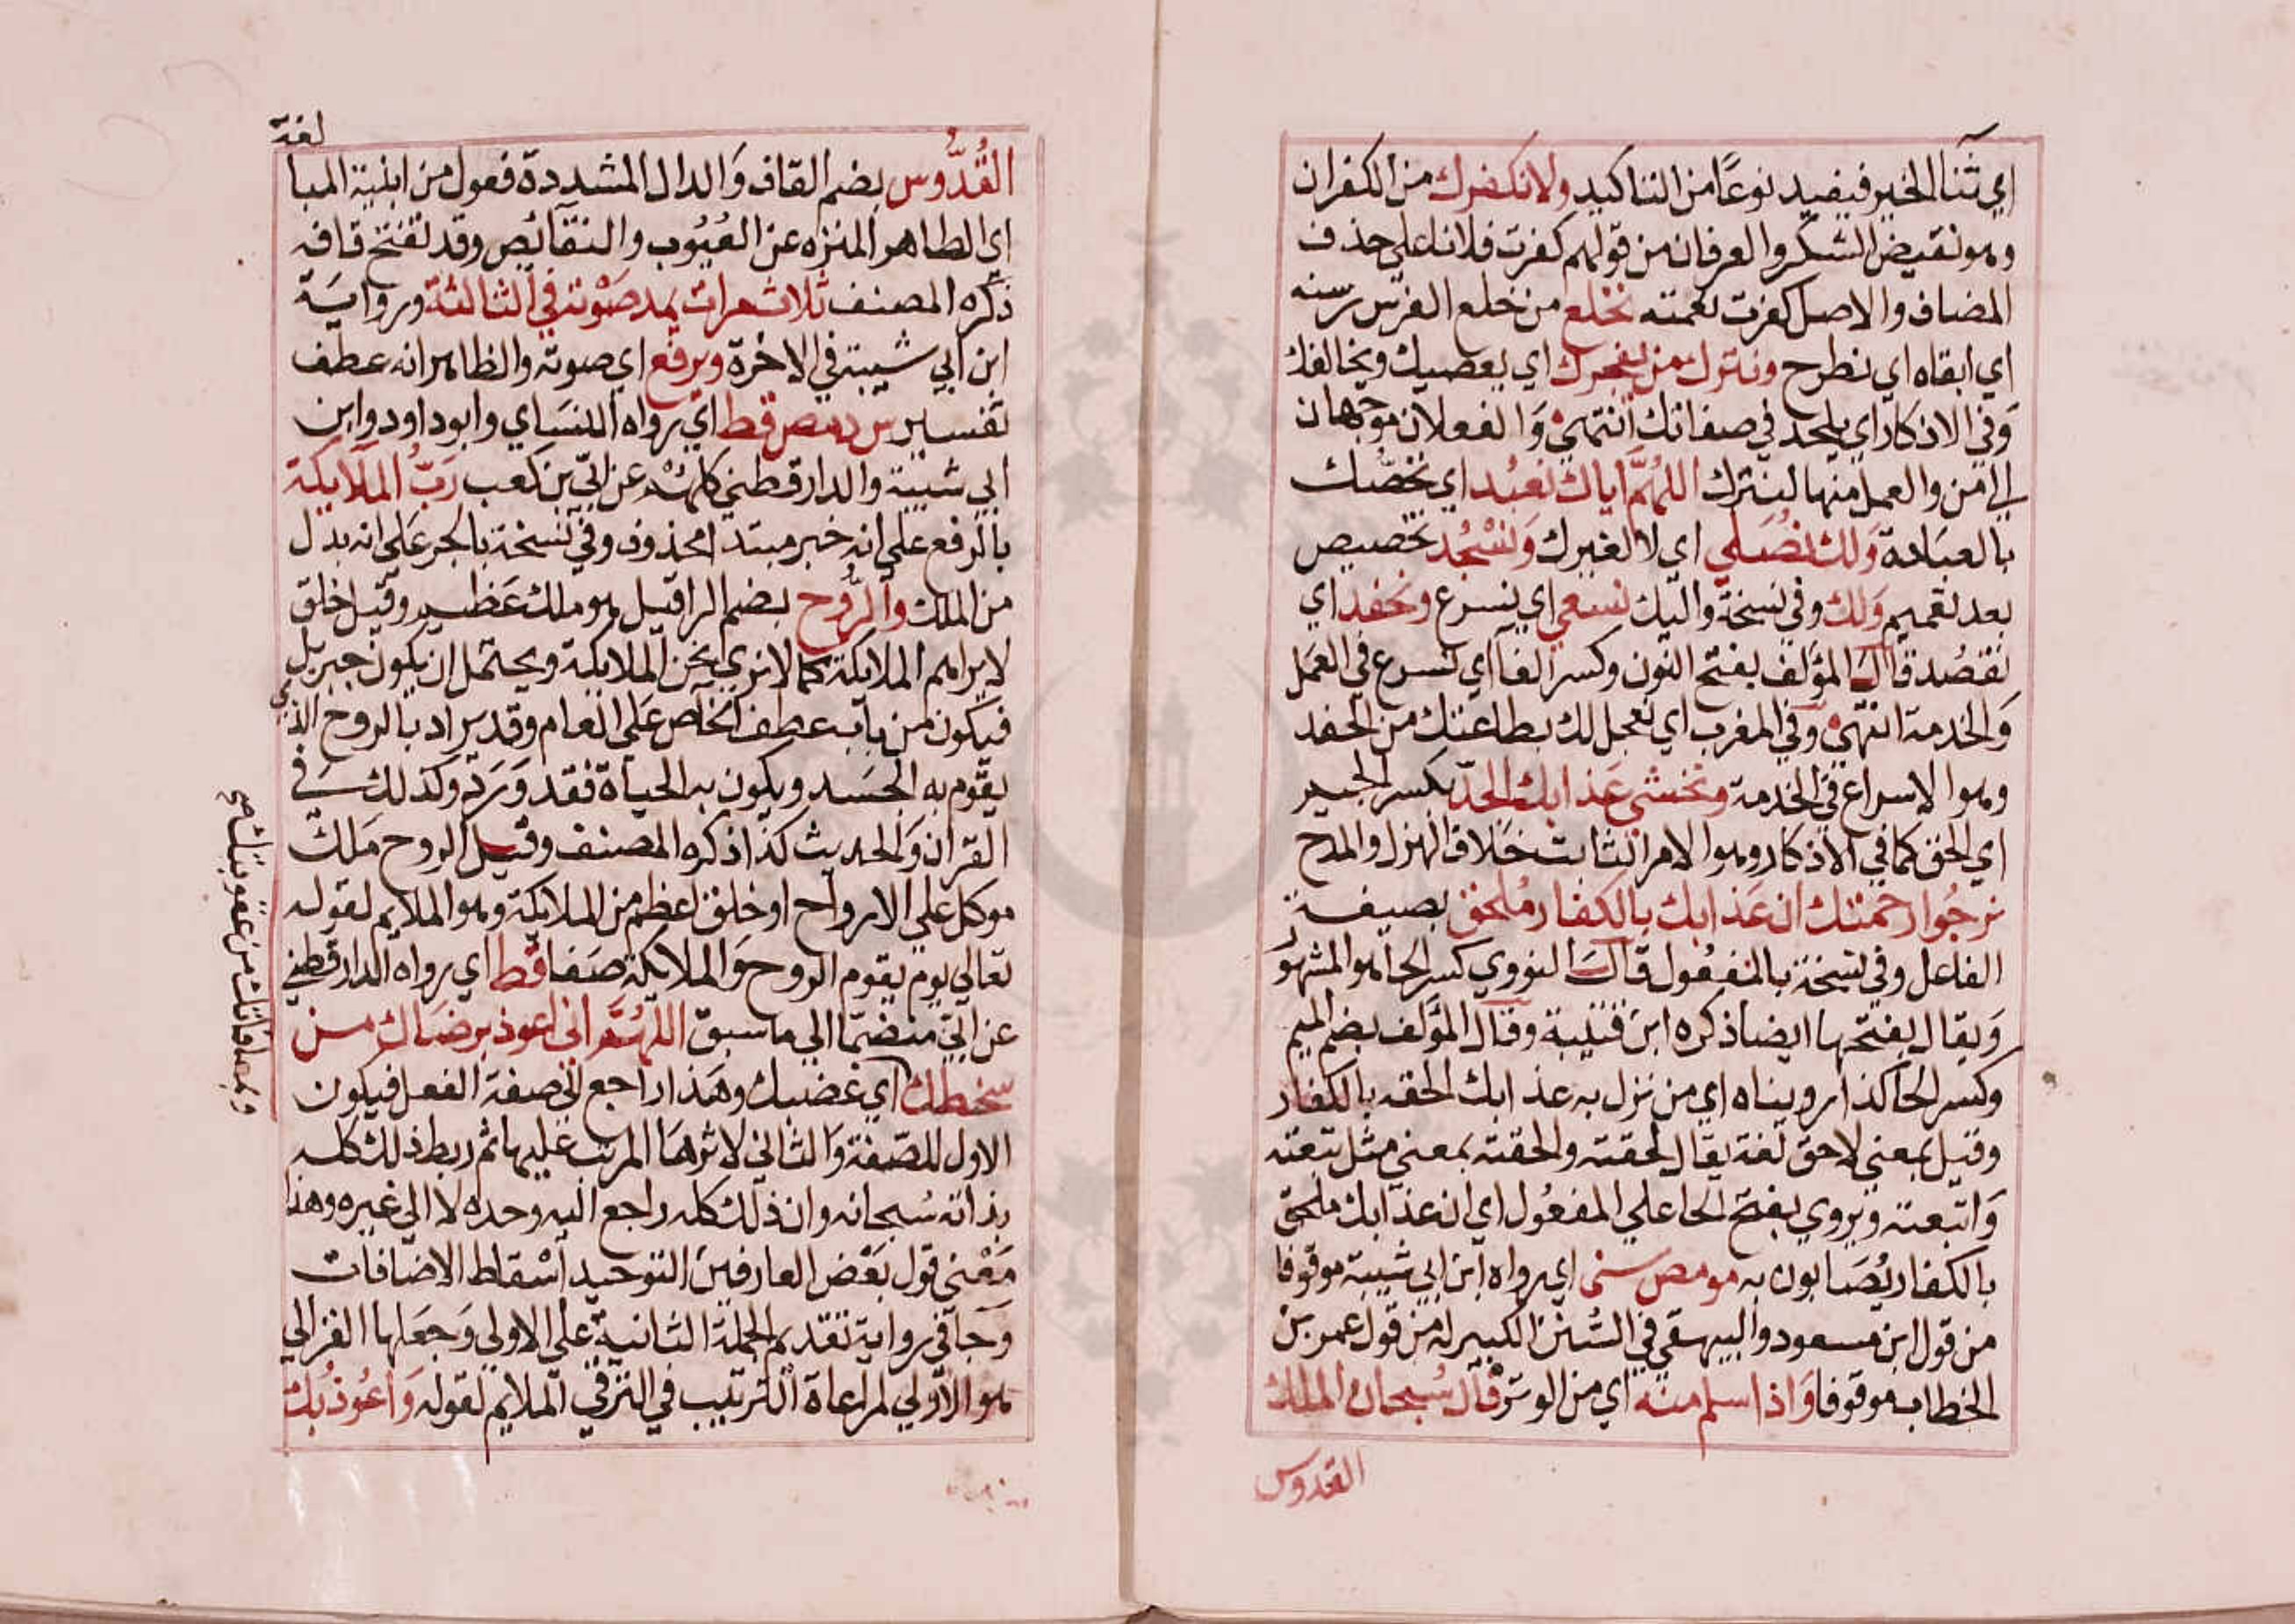 اي ثنا الخير فيفيد نوعًا من التاكيد ولا نكفرك من الكفران
وهو نقيض الشكر والعرفان من قولهم كفرت فلانا على حذف
المضاف والاصل كفرت نعمته نخلع من خلع الفرس رسنه
اي ابقاه اي نطرح ونترك من يفجرك اي يعصيك ويخالفك
وفي الاذكار اي يلحد في صفاتك انتهى والفعلان موجهان
الي من والعمل منهما لنترك اللهم اياك نعبد اي نخصك
بالعبادة ولك نصلي اي لا لغيرك ونسجد تخصيص
بعد تعميم ولك وفي نسخة واليك نسعي اي نسرع ونحفد اي
نقصد قال المؤلف بفتح النون وكسر الفا اي نسرع في العمل
والخدمة انتهى وفي المغرب اي نعجل لك بطاعتك من الحفد
وهو الاسراع في الخدمة ونخشى عذابك الجد بكسر الجيم
اي الحق كما في الاذكار وهو الامر الثابت خلاف الهزل والمزح
نرجوا رحمتك ان عذابك بالكفار ملحق بصيغة
الفاعل وفي نسخة بالمفعول قال النووي كسر الحا هو المشهور
ويقال بفتحها ايضا ذكره ابن قتيبة وقال المؤلف بضم الميم
وكسر الحا كذا رويناه اي من نزل به عذابك الحقه بالكفار
وقيل بمعني لاحق لغة يقال لحقته والحقته بمعني مثل تبعته
واتبعته ويروي بفتح الحا علي المفعول اي ان عذابك ملحق
بالكفار يصابون به مو مص سنى اي رواه ابن ابي شيبة موقوفا
من قول ابن مسعود والبيهقي في السنن الكبير له من قول عمر بن
الخطاب موقوفا واذا سلم منه اي من الوتر قال سبحان الملك
القدوس
لغة
القُدُّوس بضم القاف والدال المشددة فعول من ابنية المبا
اي الطاهر المنزه عن العيوب والنقائص وقد تفتح قافه
ذكره المصنف ثلاث مرات يمد صوته في الثالثة ورواية
ابن ابي شيبة في الاخرة ويرفع اي صوته والظاهر انه عطف
تفسير س د مص قط اي رواه النساي وابو داود وابن
ابي شيبة والدارقطني كلهم عن ابي بن كعب رب الملايكة
بالرفع على انه خبر مبتدا محذوف وفي نسخة بالجر على انه بدل
من الملك والروح بضم الرا قيل هو ملك عظيم وقيل خلق
لا يراهم الملايكة كما لا نري نحن الملايكة ويحتمل ان يكون جبريل
فيكون من باب عطف الخاص على العام وقد يراد بالروح الذي
يقوم به الجسد ويكون به الحياة فقد ورد وكذلك في
القران والحديث كذا ذكره المصنف وقيل الروح ملك
موكل علي الارواح او خلق اعظم من الملايكة وهو الملايم لقوله
تعالي يوم يقوم الروح والملايكة صفا قط اي رواه الدارقطني
عن ابي منضما الي ما سبق اللهم اني اعوذ برضاك من
سخطك اي غضبك وهذا راجع الى صفة الفعل فيكون
الاول للصفة والثاني لاثرها المرتب عليها ثم ربط ذلك كله
بذاته سبحانه وان ذلك كله راجع اليه وحده لا الي غيره وهذا
معني قول بعض العارفين التوحيد اسقاط الاضافات
وجا في رواية تقديم الجملة الثانية على الاولي وجعلها الغزالي
هو الاولي لمراعاة الترتيب في الترقي الملايم لقوله واعوذ بك
وبمعافاتك من عقوبتك صح